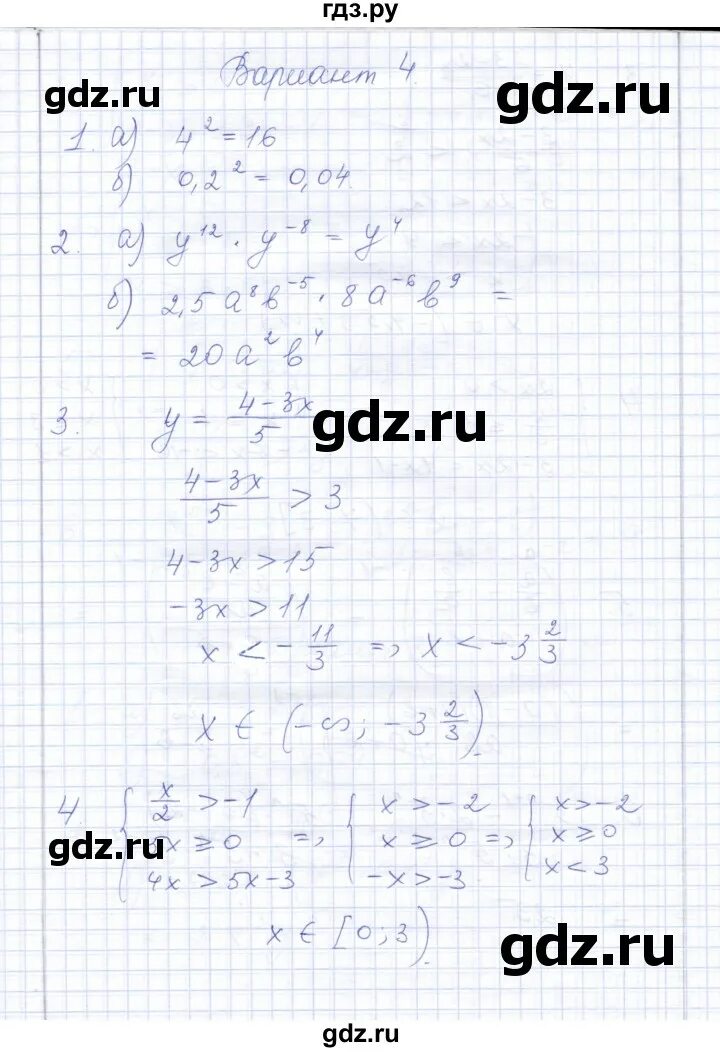 гдз.ру
Вариант 4.
gdz.ru
gdz.ru
1. а) 4² = 16
б) 0,2² = 0,04.
2. а) y¹² · y⁻⁸ = y⁴
б) 2,5a⁸b⁻⁵ · 8a⁻⁶b⁹ =
= 20a²b⁴
3. y = (4-3x)/5
gdz.ru
(4-3x)/5 > 3
4-3x > 15
-3x > 11
x < -11/3 => x < -3 2/3
gdz.ru
x ∈ (-∞; -3 2/3).
4. { x/2 > -1 { x > -2 { x > -2
x ≥ 0 => x ≥ 0 => x ≥ 0
gdz.ru
4x > 5x-3 -x > -3 x < 3
x ∈ [0; 3).
gdz.ru
gdz.ru